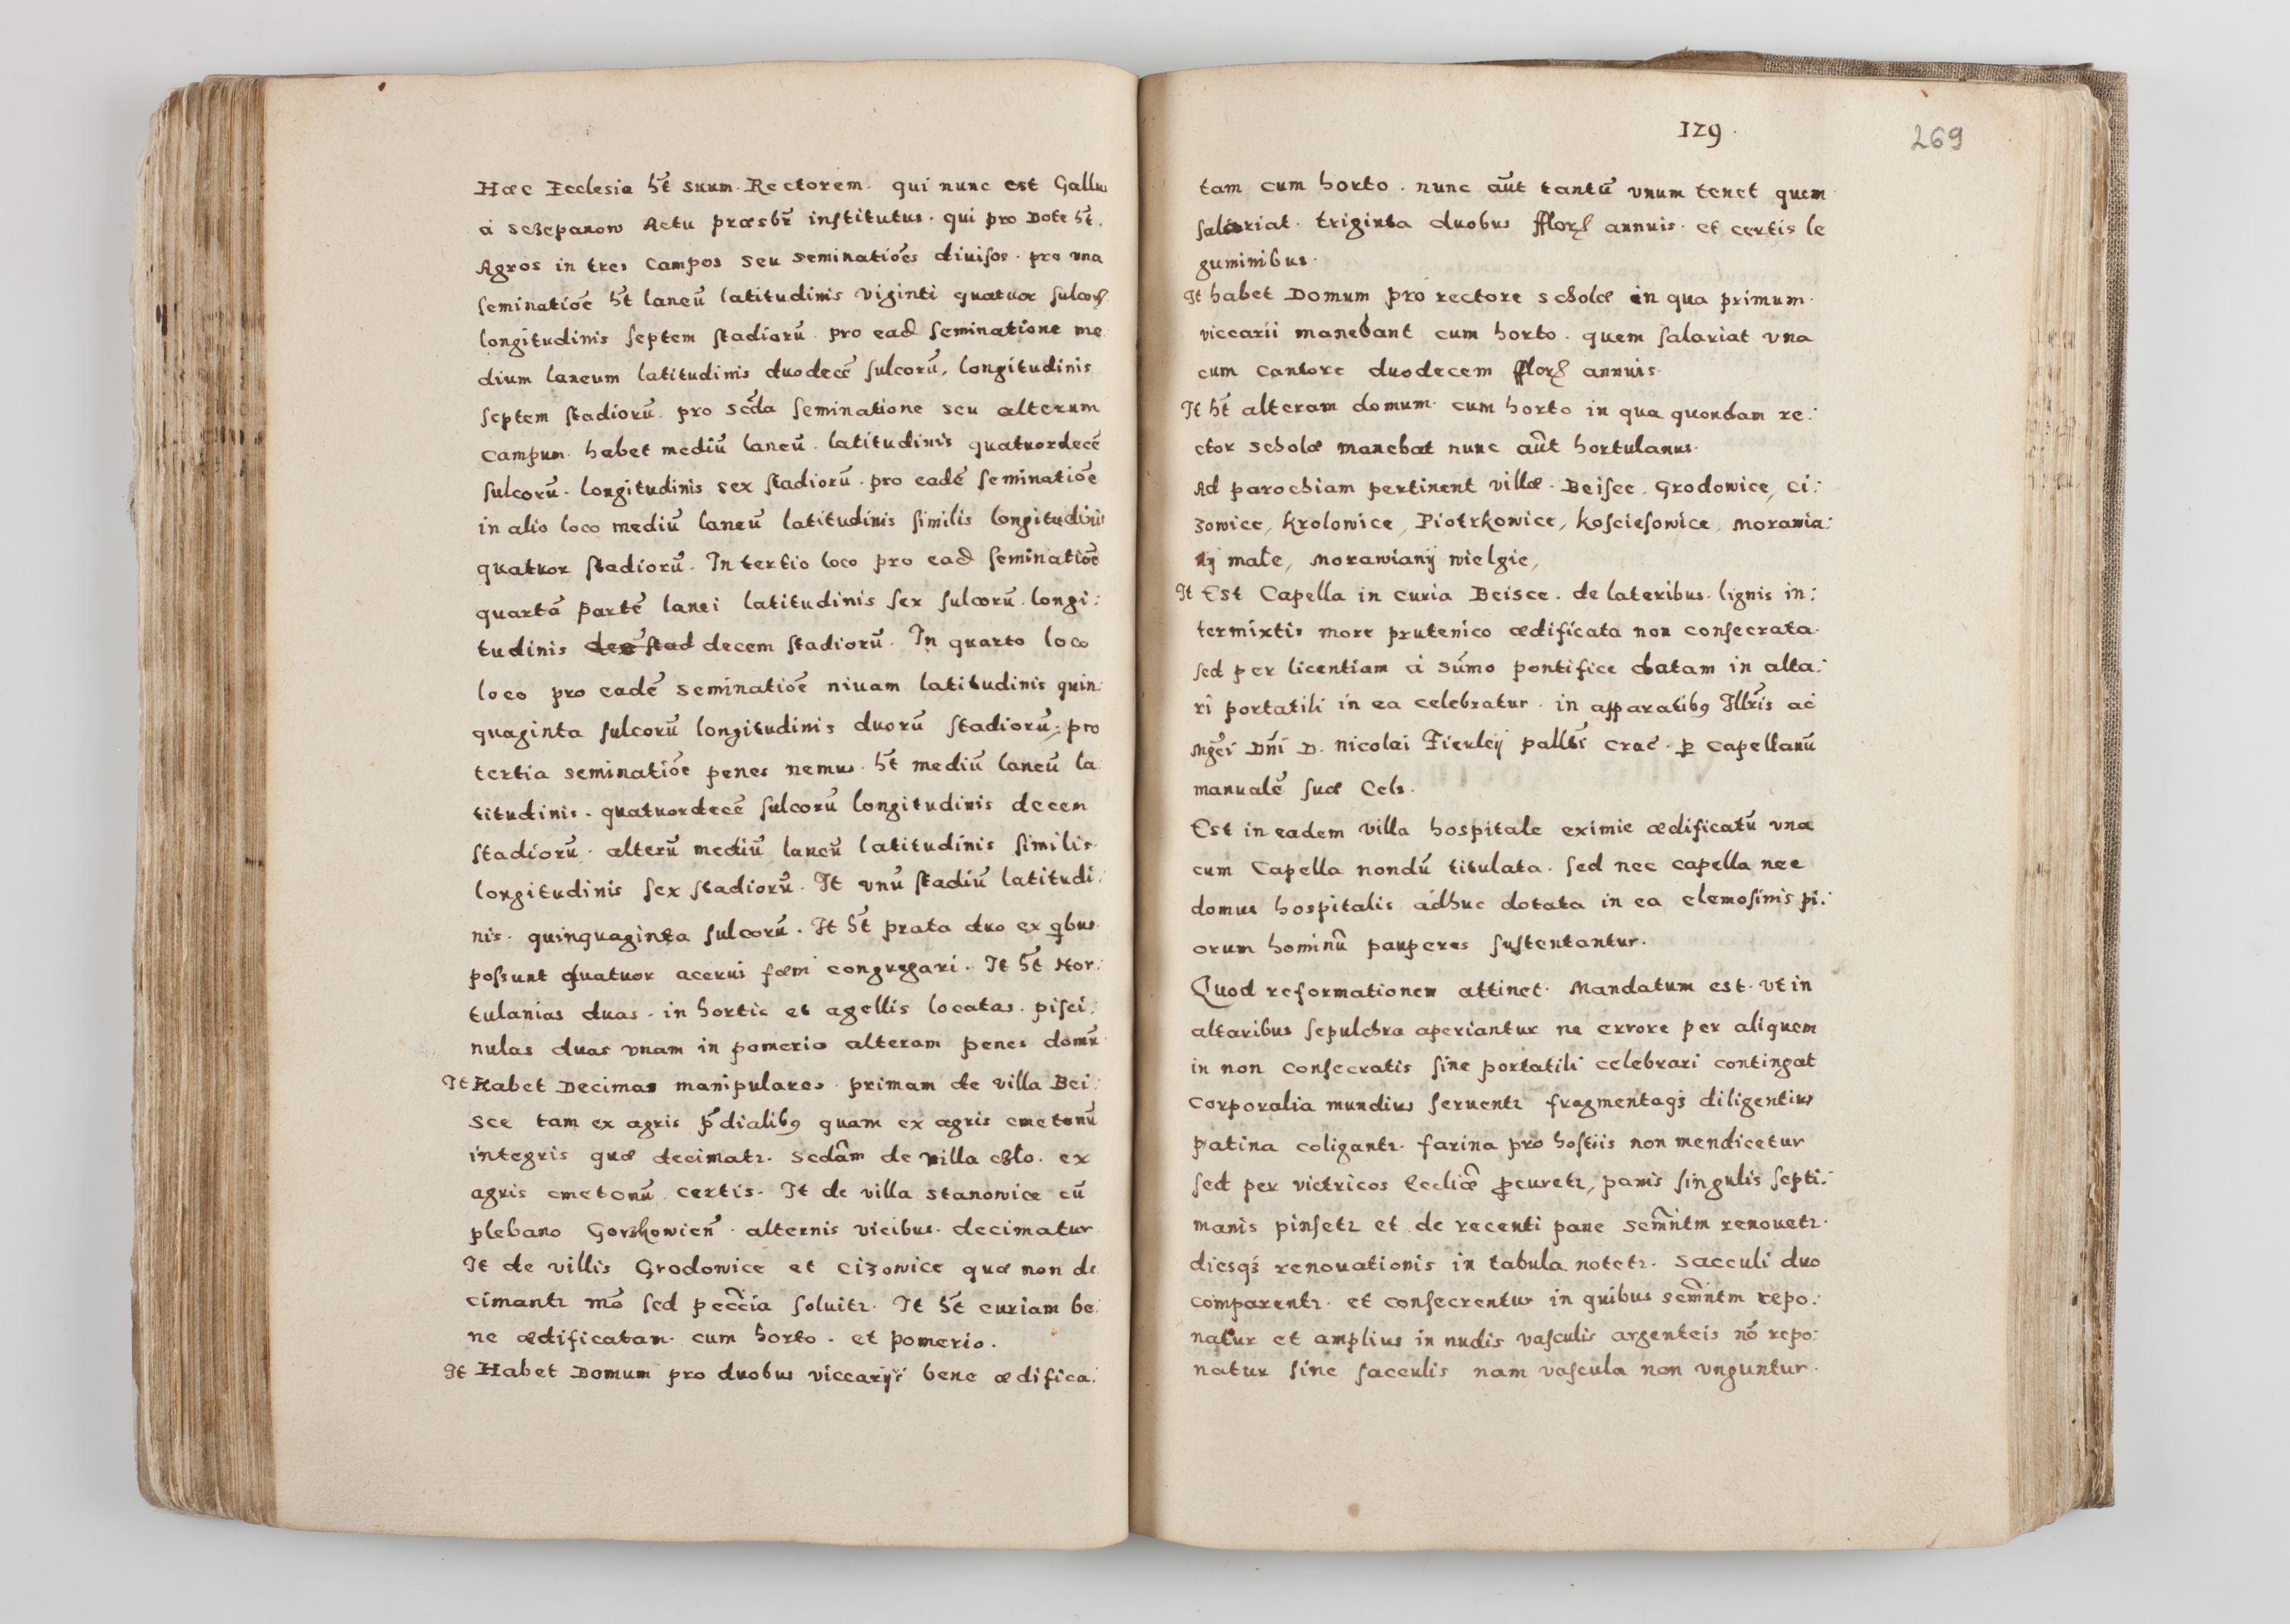 Hæc Ecclesia h̃t suum Rectorem qui nunc est Gallus
á Sczepanow Actu præsbr̃ institutus. qui pro Dote h̃t.
Agros in tres Campos seu seminatiões diuisos. pro vna
seminatiõe h̃t laneũ latitudinis viginti quatuor sulcorꝝ
longitudinis septem stadiorũ. pro ead seminatione me
dium laneum latitudinis duodecẽ sulcorũ, longitudinis
septem stadiorũ. pro scd̃a seminatione seu alterum
campum habet mediũ laneũ. latitudinis quatuordecẽ
sulcorũ. longitudinis sex stadiorũ. pro eadẽ seminatiõe
in alio loco mediũ laneũ latitudinis similis longitudinis
quatuor stadiorũ. In tertio loco pro ead seminatiõe
quartã partẽ lanei latitudinis sex sulcorũ longi:
tudinis decẽ stad decem stadiorũ. In quarto loco
loco pro eadẽ seminatiõe niuam latitudinis quin:
quaginta sulcorũ longitudinis duorũ stadiorũ: pro
tertia seminatiõe penes nemus. h̃t mediũ laneũ la
titudinis. quatuordecẽ sulcorũ longitudinis decem
stadiorũ. alterũ mediũ laneũ latitudinis similis
longitudinis sex stadiorũ. It vnũ stadiũ latitudi:
nis. quinquaginta sulcorũ. It h̃t prata duo ex qbus
possunt quatuor acerui fæni congregari. It h̃t Hor:
tulanias duas. in hortis et agellis locatas. pisci:
nulas duas vnam in pomerio alteram penes domũ
It Habet Decimas manipulares. primam de villa Bei:
sce tam ex agris p̃dialibꝰ quam ex agris cmetonũ
integris quæ decimatr. Secdãm de villa czlo. ex
agris cmetonũ certis. It de villa Stanowice cũ
plebano Gorzkowieñ. alternis vicibus. decimatur
It de villis Grodowice et Cizowice quæ non de
cimantr mõ sed pecc̃ia soluitr. It h̃t curiam be:
ne ædificatam cum horto. et pomerio.
It Habet Domum pro duobus viccarijs bene ædifica:
129.
269
tam cum horto. nunc aũt tantũ vnum tenet quem
salariat. triginta duobus fflorꝝ annuis. et certis le
guminibus.
It habet Domum pro rectore scholæ in qua primum
viccarii manebant cum horto. quem salariat vna
cum cantore duodecem fflorꝝ annuis.
It h̃t alteram domum cum horto in qua quondam re:
ctor scholæ manebat nunc aũt hortulanus.
Ad parochiam pertinent villæ. Beisce. Grodowice, Ci:
zowice, Krolowice, Piotrkowice, Koscieſowice, Morawia:
nÿ małe, Morawianÿ wielgie,
It Est Capella in curia Beisce. de lateribus. lignis in:
termixtis more prutenico ædificata non consecrata.
sed per licentiam á sũmo pontifice datam in alta:
ri portatili in ea celebratur. in apparatibꝰ Illr̃is ac
Mgc̃i Dñi D. Nicolai Fierleÿ pallt̃i Crac̃. ꝑ capellanũ
manualẽ suæ Cels.
Est in eadem villa hospitale eximie ædificatũ vna
cum Capella nondũ titulata. sed nec capella nec
domus hospitalis adhuc dotata in ea elemosinis pi:
orum hominũ pauperes sustentantur.
Quod reformationem attinet. Mandatum est. vt in
altaribus sepulchra aperiantur ne errore per aliquem
in non consecratis sine portatili celebrari contingat
Corporalia mundius seruentr fragmentaqꝫ diligentius
patina coligantr. farina pro hostiis non mendicetur
sed per victricos Eccliæ ꝓcuretr, panis singulis septi:
manis pinsetr et de recenti pane sacm̃ntm renouetr.
diesqꝫ renouationis in tabula notetr. Sacculi duo
comparentr. et consecrentur in quibus sacm̃ntm repo:
natur et amplius in nudis vasculis argenteis nõ repo:
natur sine sacculis nam vascula non vnguntur.